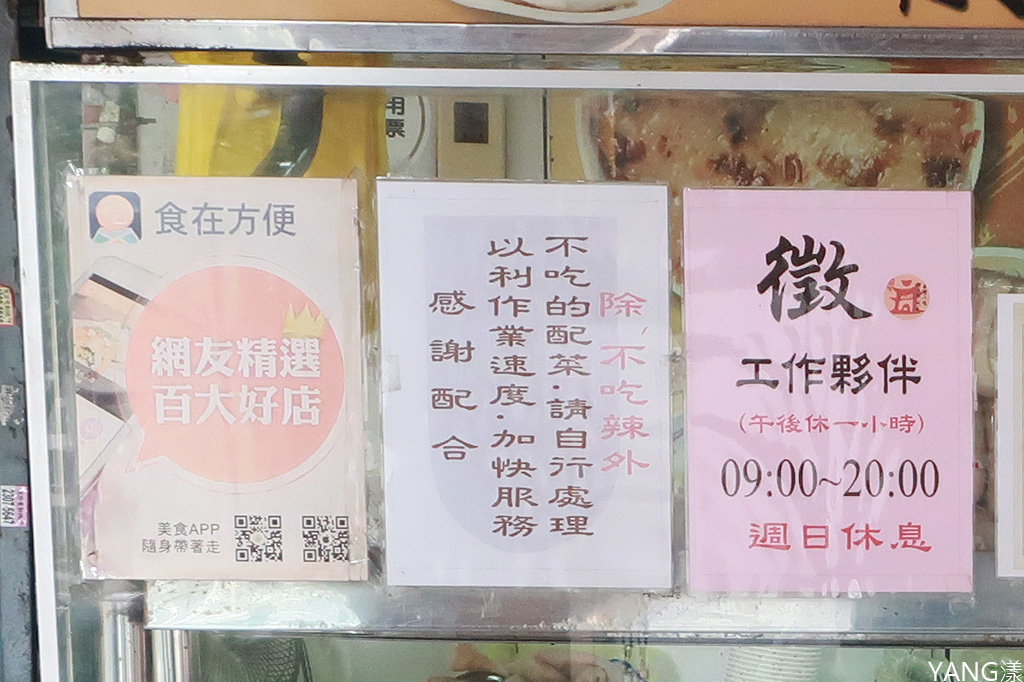 食在方便
網友精選
百大好店
美食APP
隨身帶著走
除,不吃辣外
不吃的配菜.請自行處理
以利作業速度.加快服務
感謝配合
徵
工作夥伴
(午後休一小時)
09:00~20:00
週日休息
用
票
YANG漾